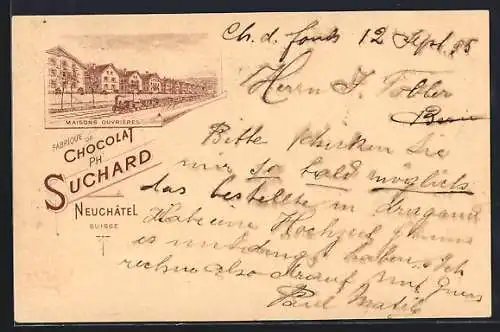 MAISONS OUVRIÈRES
FABRIQUE DE
CHOCOLAT
PH
SUCHARD
NEUCHÂTEL
SUISSE
Ch. d. fonds 12 Sept. 95
Herrn J. Tobler
Bern
Bitte schicken Sie
mir so bald möglichst
das bestellte in
Habe eine Hochzeit
es unbedingt haben. Ich
rechne also darauf mit Gruss
Paul